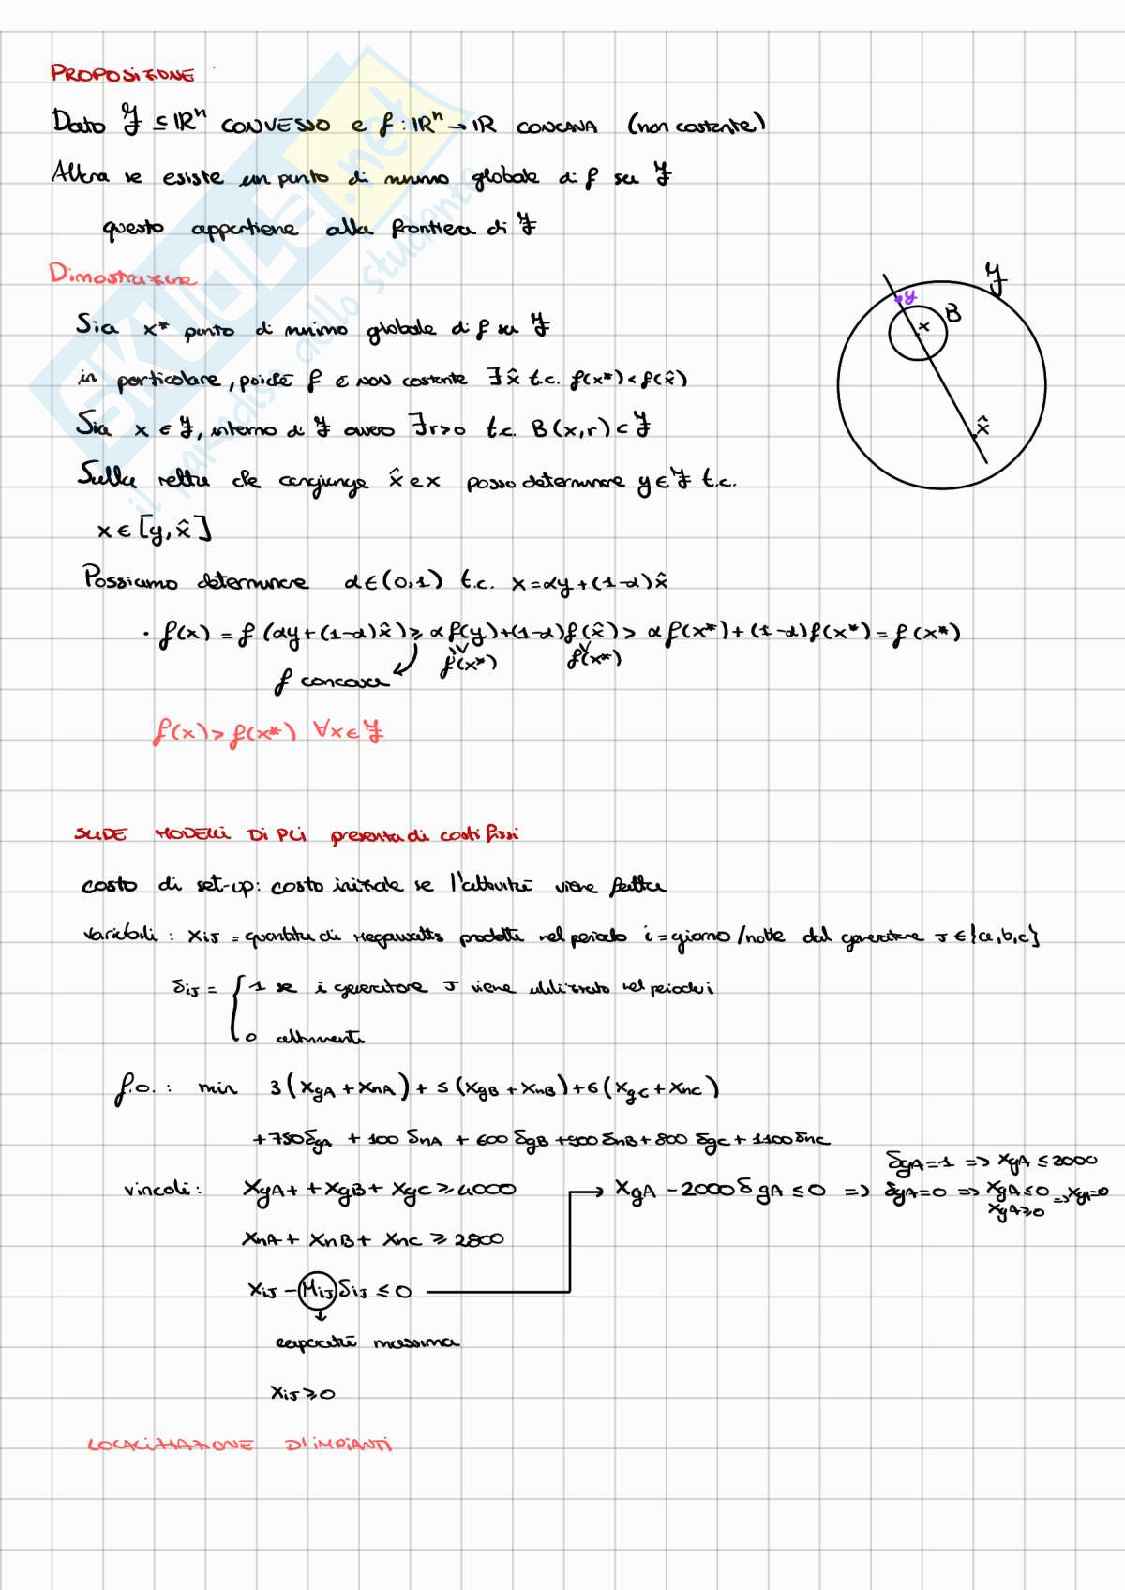 PROPOSIZIONE
Dato F ⊆ IRⁿ CONVESSO e f: IRⁿ → IR CONCAVA (non costante)
Allora se esiste un punto di minimo globale di f su F
questo appartiene alla frontiera di F
Dimostrazione
Sia x* punto di minimo globale di f su F
in particolare, poiché f è non costante ∃ x̂ t.c. f(x*) < f(x̂)
Sia x ∈ F, interno di F ovvero ∃ r>0 t.c. B(x,r) ⊂ F
Sulla retta che congiunge x̂ e x posso determinare y ∈ F t.c.
x ∈ [y, x̂]
F
y
B
x
x̂
Possiamo determinare α ∈ (0,1) t.c. x = αy + (1-α)x̂
• f(x) = f(αy + (1-α)x̂) ≥ αf(y) + (1-α)f(x̂) > αf(x*) + (1-α)f(x*) = f(x*)
f(x*) f(x*)
f concava
f(x) > f(x*) ∀x ∈ F
SLIDE MODELLI DI PLI presenza di costi fissi
costo di set-up: costo iniziale se l'attività viene fatta
variabili: xiJ = quantità di megawatts prodotti nel periodo i = giorno/notte dal generatore J ∈ {a,b,c}
δiJ = { 1 se i generatore J viene utilizzato nel periodo i
0 altrimenti
f.o.: min 3(xgA + xnA) + 5(xgB + xnB) + 6(xgC + xnC)
+ 750δgA + 100 δnA + 600 δgB + 500 δnB + 800 δgC + 1100 δnC
vincoli: xgA + + xgB + xgC ≥ 4000
xgA - 2000 δgA ≤ 0 =>
δgA = 1 => xgA ≤ 2000
δgA = 0 => xgA ≤ 0 => xgA = 0
xgA ≥ 0
xnA + xnB + xnC ≥ 2800
xiJ - MiJ δiJ ≤ 0
capacità massima
xiJ ≥ 0
LOCALIZZAZIONE DI IMPIANTI
SKUOLA.net
il paradiso dello studente